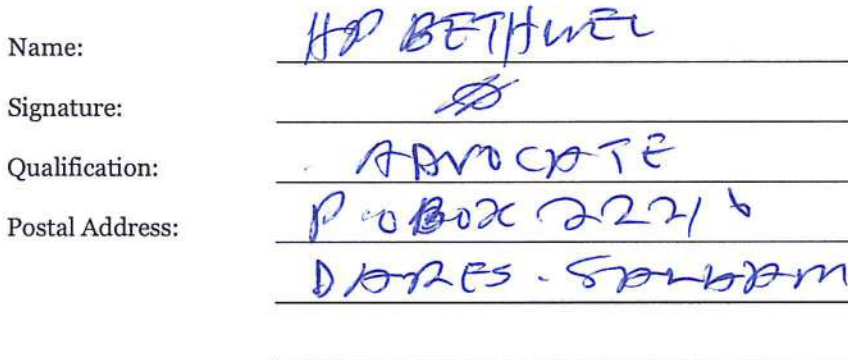 Name: HP BETHUEL
Signature:
Qualification: ADVOCATE
Postal Address: P.O BOX 22216
DARES-SALAAM